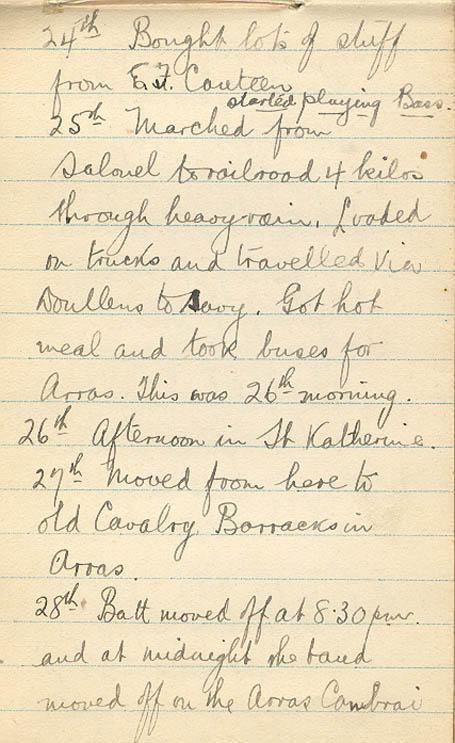 24th Bought lots of stuff
from E.F. Canteen
started playing Bass.
25th Marched from
Salouel to railroad 4 kilos
through heavy rain. Loaded
on trucks and travelled via
Doullens to Savy. Got hot
meal and took buses for
Arras. This was 26th morning.
26th Afternoon in St Katherine.
27th Moved from here to
old Cavalry Barracks in
Arras.
28th Batt moved off at 8.30 pm.
and at midnight the band
moved off on the Arras Cambrai